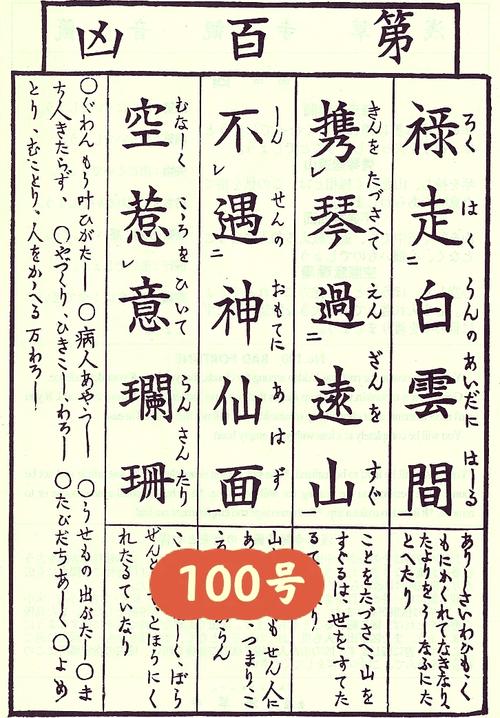 第百凶
禄走白雲間
ろく はくうんのあいだに はしる
携レ琴過二遠山一
きんをたづさへて えんざんを すぐ
不レ遇二神仙面一
しんせんの おもてに あはず
空惹レ意瓓珊
むなしく こゝろをひいて らんさんたり
ありしさいわひも、く
もにかくれてなきなり、
たよりをうしなふにた
とへたり
ことをたづさへ、山を
すぐるは、世をすてた
るて
もせん人に
つまり、こ
らん
しく、ばら
ぜんと とほりにく
れたるていなり
○ぐわんもう叶ひがたし ○病人あやうし ○うせもの出がたし ○ま
ち人きたらず ○やづくり、ひきこしわろし ○たびだちあしく ○よめ
とり、むことり、人をかゝへる万わろし
100号